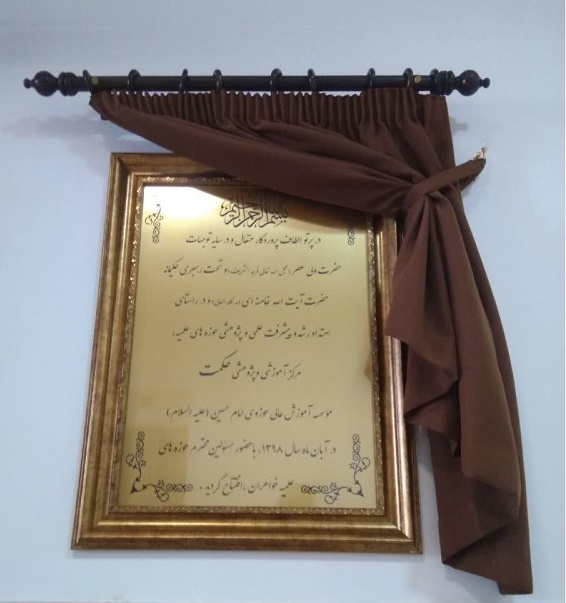 بسم الله الرحمن الرحیم
در پرتو الطاف پروردگار متعال و در سایه توجهات
حضرت ولی عصر (عجل الله تعالی فرجه الشریف) و تحت رهبری حکیمانه
حضرت آیت الله خامنه ای (مد ظله العالی) و در راستای
امتداد رشد و پیشرفت علمی و پژوهشی حوزه های علمیه،
مرکز آموزشی و پژوهشی حکمت
مؤسسه آموزش عالی حوزوی امام حسین (علیه السلام)
در آبان ماه سال ۱۳۹۸، با حضور مسئولین محترم حوزه های
علمیه خواهران، افتتاح گردید.